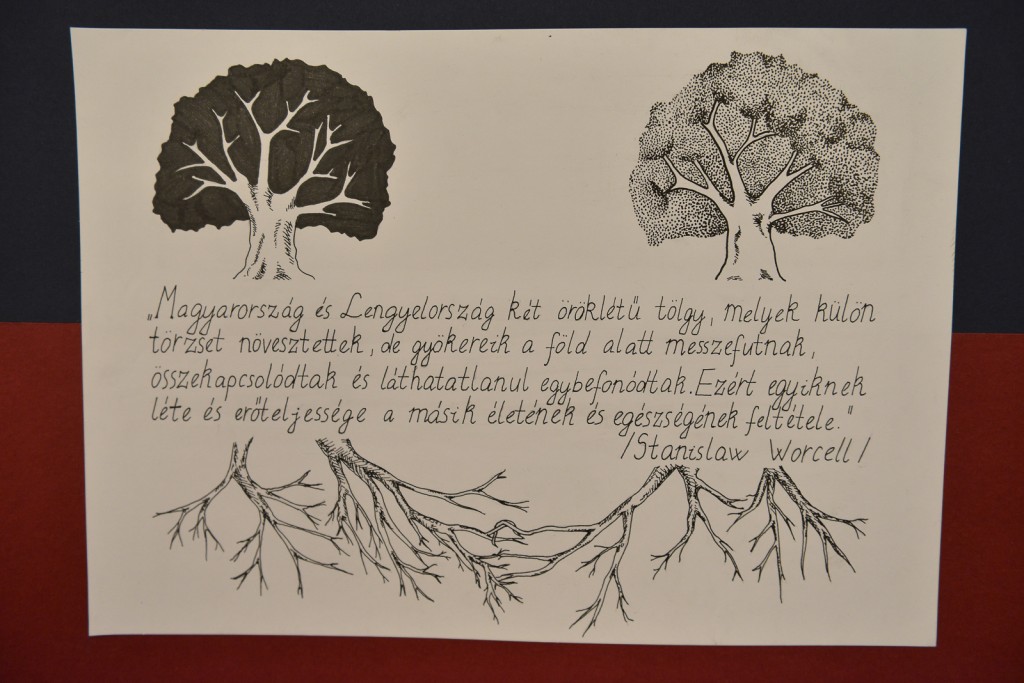 „Magyarország és Lengyelország két öröklétű tölgy, melyek külön
törzset növesztettek, de gyökereik a föld alatt messzefutnak,
összekapcsolódtak és láthatatlanul egybefonódtak. Ezért egyiknek
léte és erőteljessége a másik életének és egészségének feltétele."
/Stanislaw Worcell/